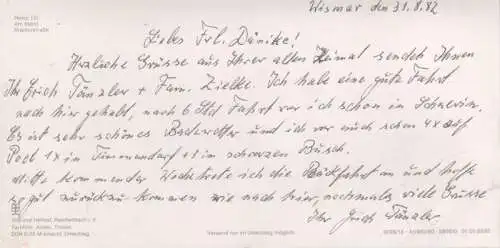 Wismar den 31.8.82
Liebes Frl. Dänike!
Herzliche Grüsse aus Ihrer alten Heimat sendet Ihnen
Ihr Erich Tänzler + Fam. Zielke. Ich habe eine gute Fahrt
nach hier gehabt, nach 6 Std Fahrt war ich schon in Schwerin.
Es ist sehr schönes Badewetter und ich war auch schon 4x auf
Poel 1x in Timmendorf + 3 in schwarzen Busch.
Mitte kommender Woche trete ich die Rückfahrt an und hoffe
so gut zurück zu kommen wie nach hier, nochmals viele Grüsse
Ihr Erich Tänzler
Versand nur im Umschlag möglich